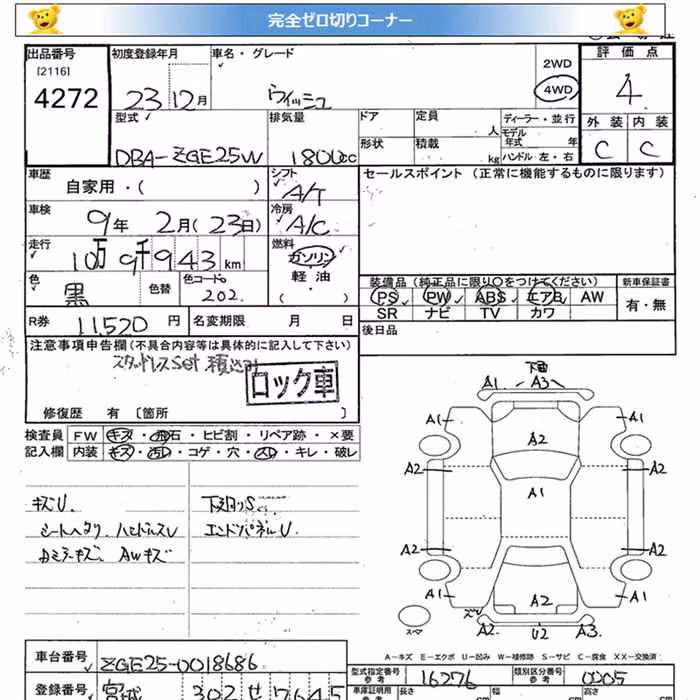 完全ゼロ切りコーナー
出品番号 初度登録年月 車名・グレード 2WD 評価点
[2116] 4WD
4272 23 12月 ウィッシュ 4
型式 排気量 ドア 定員 人 ディーラー・並行 外装 内装
形状 積載 kg モデル年式 年
DBA-ZGE25W 1800cc ハンドル 左・右 C C
車歴 自家用・( ) シフト A/T セールスポイント (正常に機能するものに限ります)
車検 9年 2月(23日) 冷房 A/C
走行 10万 9千 943 km 燃料 ガソリン
色 黒 色替 色コードNo. 202. 軽油 ( )
装備品 (純正品に限り○をつけてください) 新車保証書
PS PW ABS エアB AW 有・無
SR ナビ TV カワ
R券 11,520 円 名変期限 月 日 後日品
注意事項申告欄(不具合内容等は具体的に記入して下さい)
スタッドレスSet 積込み
ロック車
修復歴 有 〔箇所 〕
検査員 FW キズ・飛石・ヒビ割・リペア跡・×要
記入欄 内装 キズ・汚レ・コゲ・穴・スレ・キレ・破レ
キズU. 下廻りS.
シートヘタリ ハンドルスレ エンドパネルU.
AWキズ
下回
A1 A3
A1 A1
A2
A2 A2
A1
A2 A2
A1 A2 A1
スペア
A2 U2 A3
A-キズ E-エクボ U-凹み W-補修跡 S-サビ C-腐食 XX-交換済
車台番号 ZGE25-0018686 型式指定番号 参考 16276 類別区分番号 参考 0005
登録番号 宮城 302 せ 7645 車庫証明用 長さ 幅 高さ